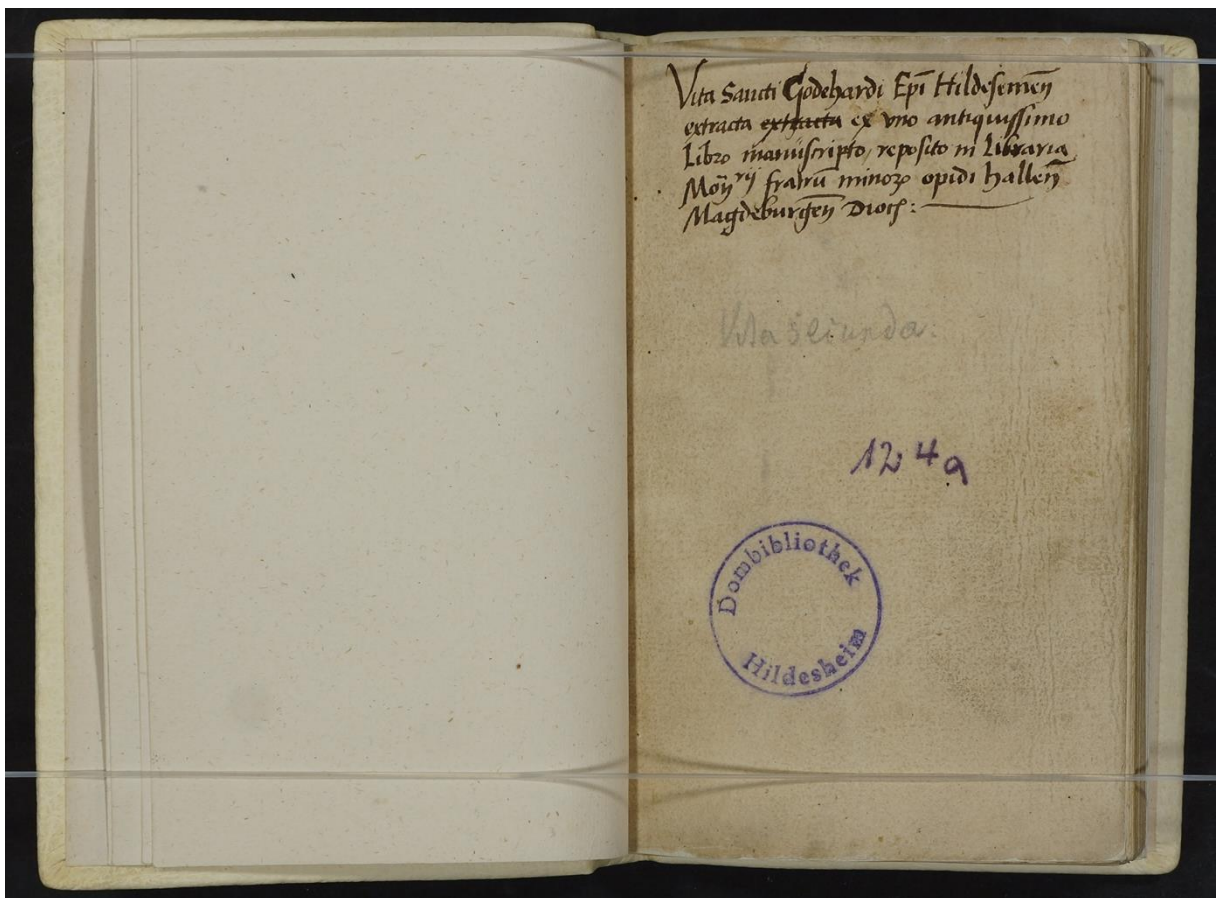 Vita Sancti Godehardi Epī Hildesemēn
extracta extracta ex vno antiquissimo
Libro manuscripto, reposito in Libraria
Moñrij fratrū minorꝝ opidi hallen̄
Magdeburgen̄ Dioc̄:
Vita secunda.
124a
Dombibliothek
Hildesheim